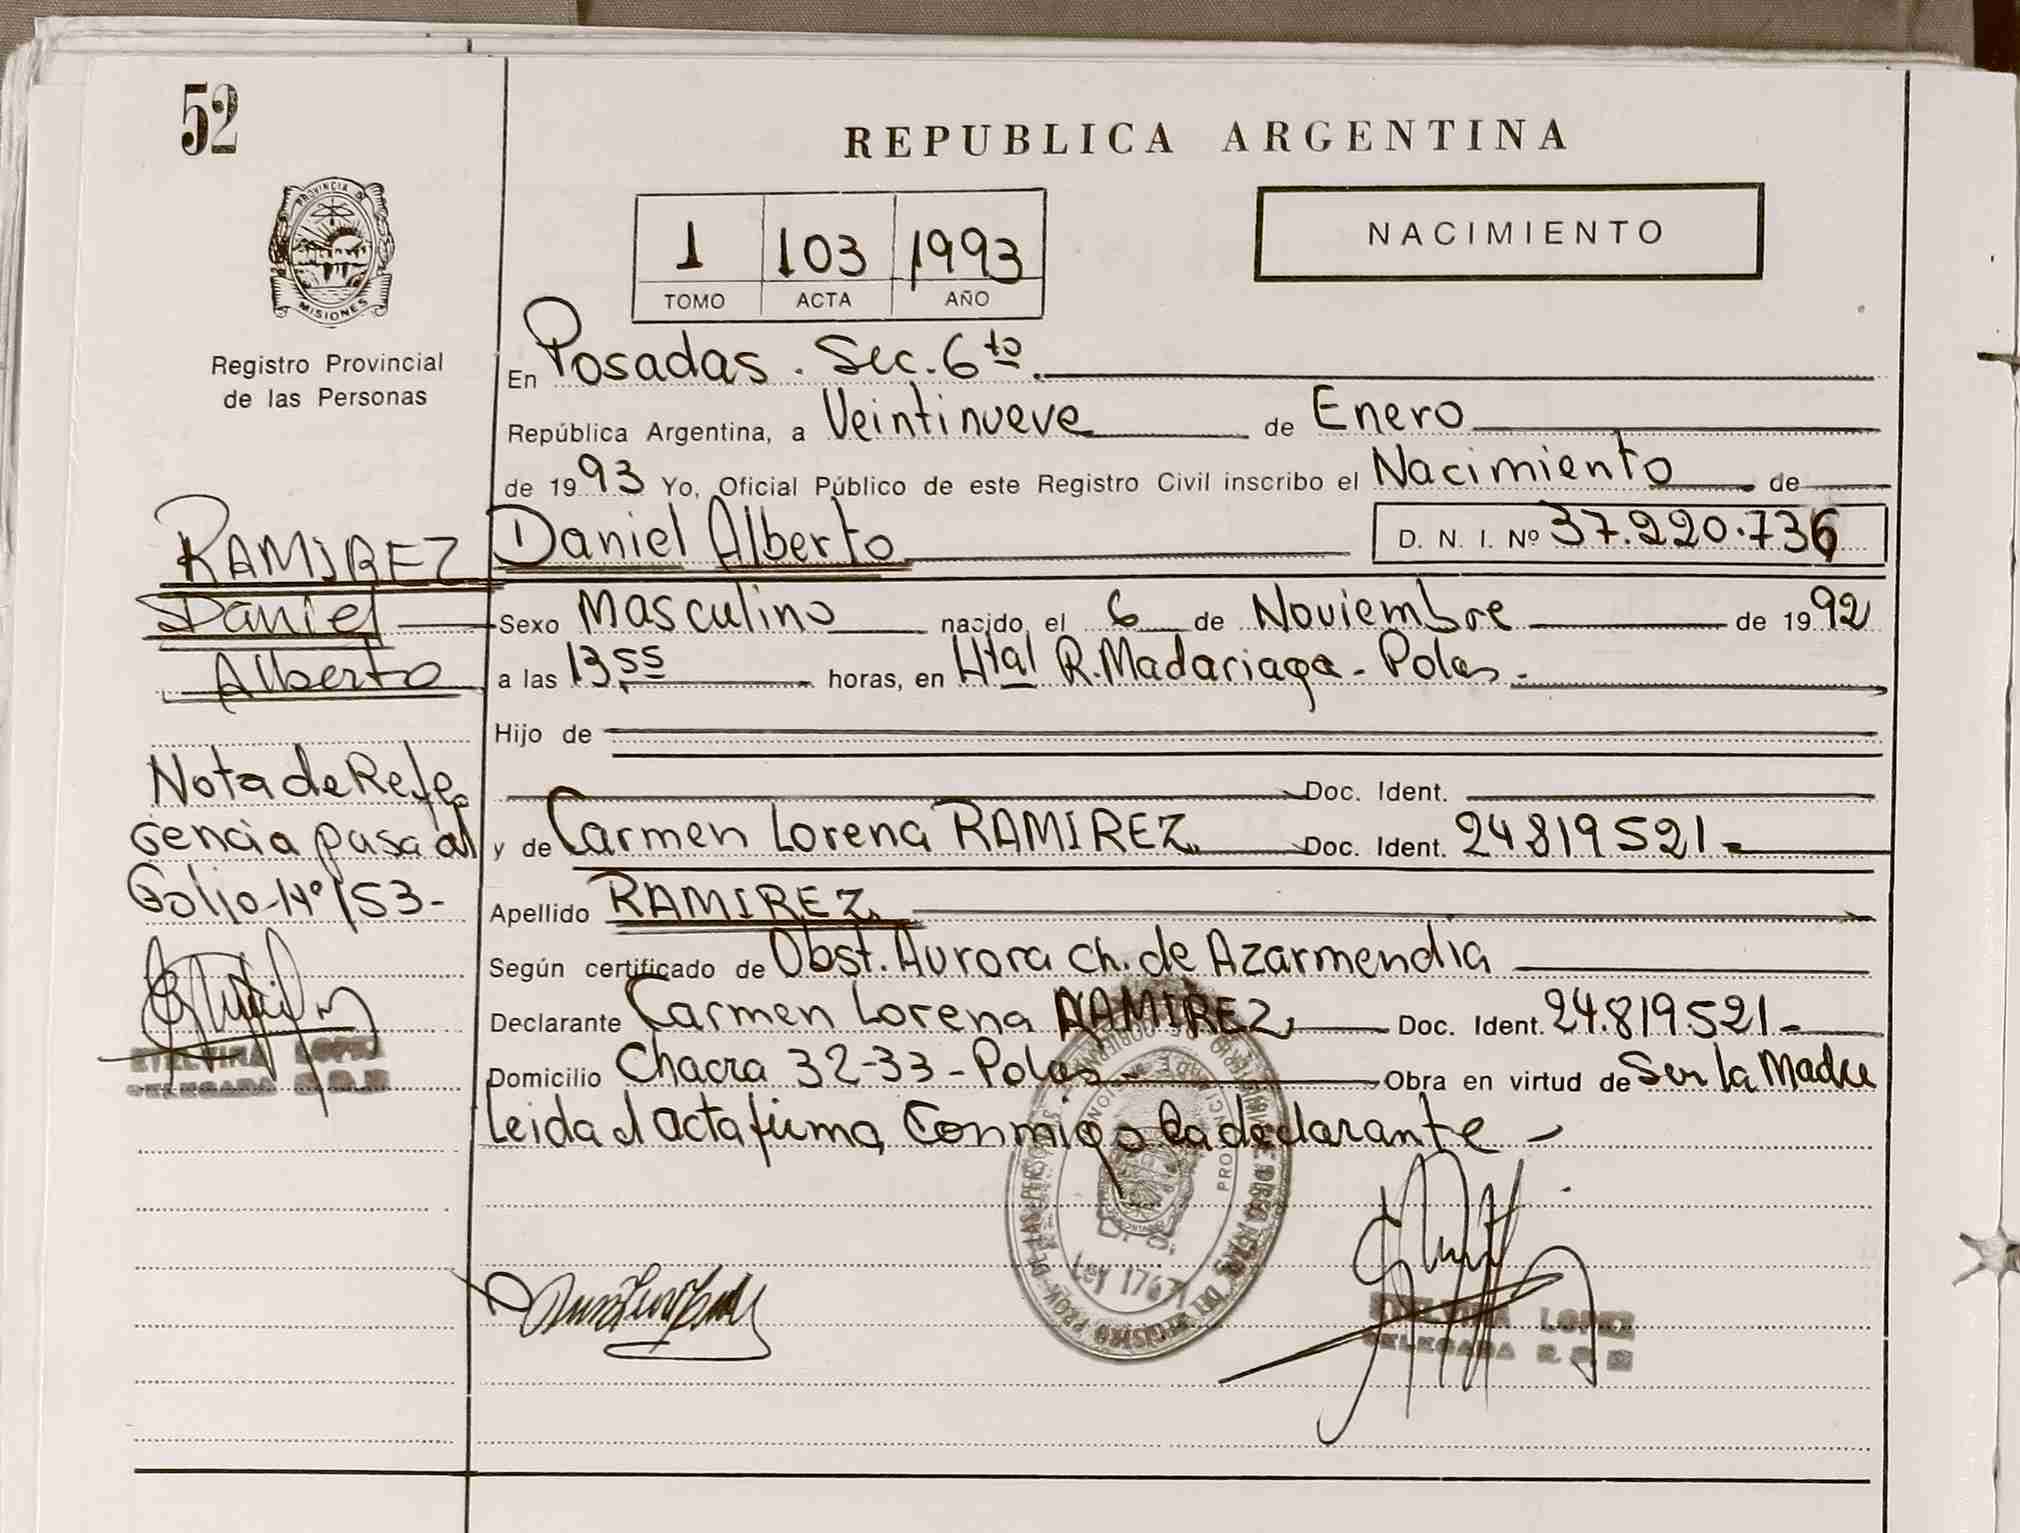 52
REPUBLICA ARGENTINA
PROVINCIA DE
MISIONES
Registro Provincial
de las Personas
1 103 1993
TOMO ACTA AÑO
NACIMIENTO
En Posadas. Sec. 6to
República Argentina, a Veintinueve de Enero
de 1993 Yo, Oficial Público de este Registro Civil inscribo el Nacimiento de
RAMIREZ Daniel Alberto D. N. I. Nº 37.220.736
Daniel
Alberto
Sexo Masculino nacido el 6 de Noviembre de 1992
a las 13,55 horas, en Htal R. Madariaga - Pdas.
Hijo de
Doc. Ident.
y de Carmen Lorena RAMIREZ Doc. Ident. 24819521-
Apellido RAMIREZ
Según certificado de Obst. Aurora Ch. de Azarmendia
Declarante Carmen Lorena RAMIREZ Doc. Ident. 24.819.521-
Domicilio Chacra 32-33 - Pdas - Obra en virtud de Ser la Madre
Leida el acta firma conmigo la declarante -
Nota de Refe
rencia pasa al
Folio Nº 153-
ETELVINA LOPEZ
DELEGADA R.P.
Ley 1767
ETELVINA LOPEZ
DELEGADA R.P.